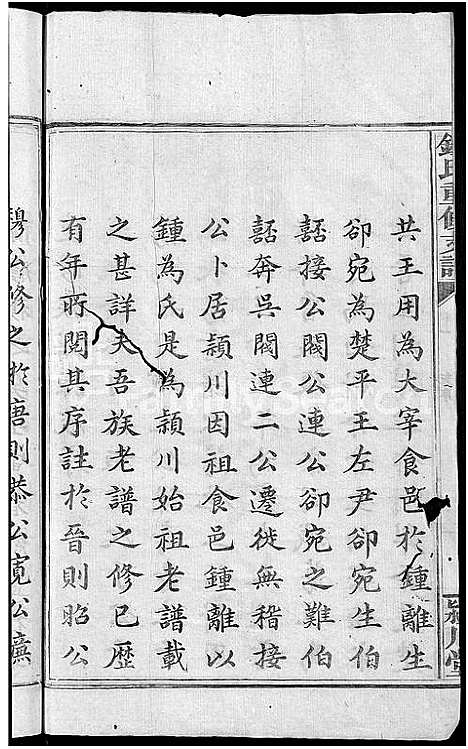 鍾氏重修支譜
潁川堂
共王用為大宰食邑於鍾離生
卻宛為楚平王左尹卻宛生伯
嚭接公閻公連公卻宛之難伯
嚭奔吳閻連二公遷徙無稽接
公卜居潁川因祖食邑鍾離以
鍾為氏是為潁川始祖老譜載
之甚詳夫吾族老譜之修已歷
有年所閱其序註於晉則昭公
穆公修之於唐則恭公寬公廡